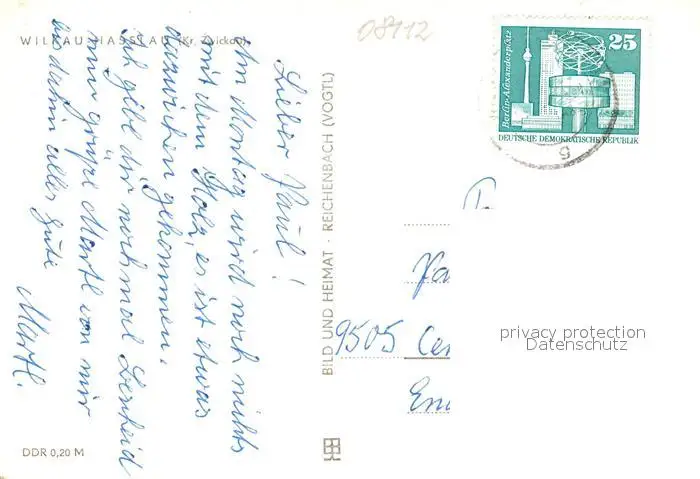 WILKAU-HASSLAU (Kr. Zwickau)
Lieber Paul!
Am Montag wird noch nichts
mit dem Holz, es ist etwas
dazwischen gekommen.
Ich gebe dir nochmal Bescheid
nun grüße Martl von mir
bis dahin alles Gute
Martl.
DDR 0,20 M
BILD UND HEIMAT · REICHENBACH (VOGTL)
08412
Berlin-Alexanderplatz
25
DEUTSCHE DEMOKRATISCHE REPUBLIK
5
9505
privacy protection
Datenschutz